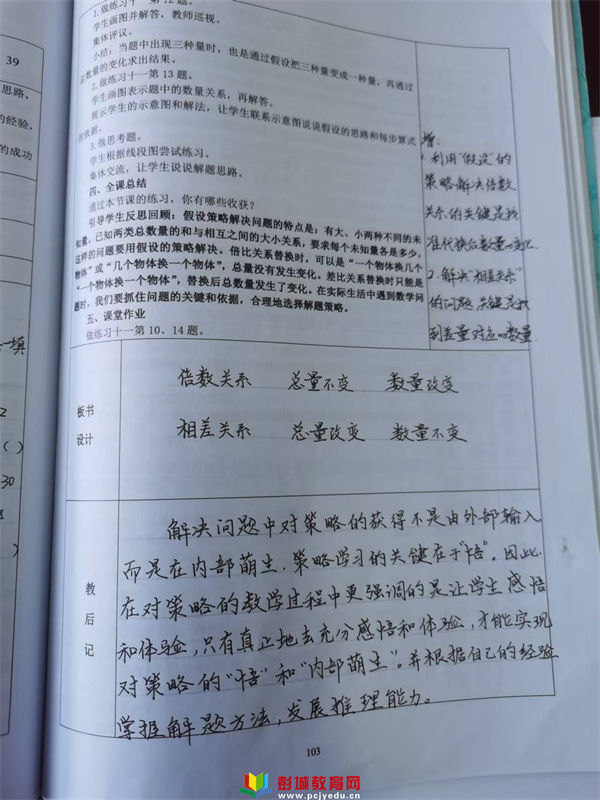 1.做练习十一第12题。
学生画图并解答,教师巡视。
集体评议。
小结:当题中出现三种量时,也是通过假设把三种量变成一种量,再通过
总数量的变化求出结果。
2.做练习十一第13题。
学生画图表示题中的数量关系,再解答。
展示学生的示意图和解法,让学生联系示意图说说假设的思路和每步算式
的依据。
3.做思考题。
学生根据线段图尝试练习。
集体交流,让学生说说解题思路。
四、全课总结
通过本节课的练习,你有哪些收获?
引导学生反思回顾:假设策略解决问题的特点是:有大、小两种不同的未
知量,已知两类总数量的和与相互之间的大小关系,要求每个未知量各是多少,
这样的问题要用假设的策略解决。倍比关系替换时,可以是“一个物体换几个
物体”或“几个物体换一个物体”,总量没有发生变化。差比关系替换时只能是
“一个物体换一个物体”,替换后总数量发生了变化。在实际生活中遇到数学问
题时,我们要抓住问题的关键和依据,合理地选择解题策略。
五、课堂作业
做练习十一第10、14题。
增:
1.利用“假设”的
策略解决倍数
关系的关键是找
准代换后数量的变化
2.解决“相差关系”
的问题关键是找
到差量对应的数量
板书
设计
倍数关系 总量不变 数量改变
相差关系 总量改变 数量不变
教
后
记
解决问题中对策略的获得不是由外部输入
而是在内部萌生.策略学习的关键在于“悟”。因此.
在对策略的教学过程中更强调的是让学生感悟
和体验,只有真正地去充分感悟和体验,才能实现
对策略的“悟”和“内部萌生”。并根据自己的经验
掌握解题方法,发展推理能力。
103
39
思路,
的经验,
的成功
一填
2
( )
30
( )
彭城教育网
www.pcjyedu.cn